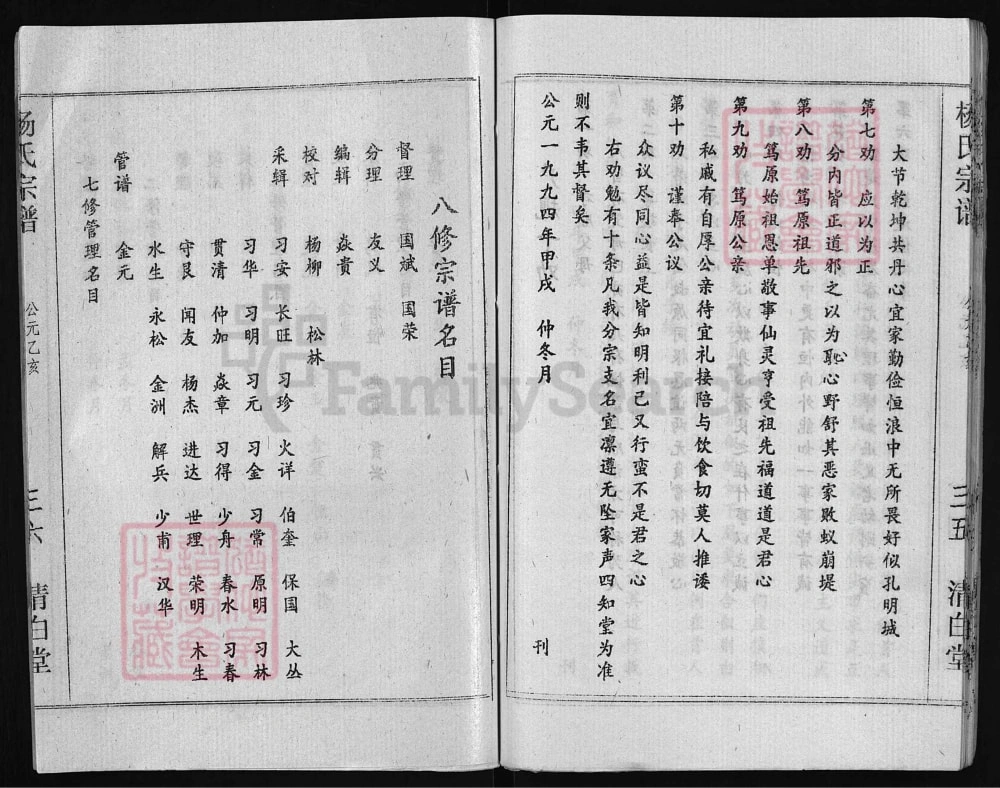 杨氏宗谱
三五
清白堂
大节乾坤共丹心宜家勤俭恒浪中无所畏好似孔明城
第七劝 应以为正
分内皆正道邪之以为恥心野舒其恶家败蚁崩堤
第八劝 笃原祖先
笃原始祖恩单敌事仙灵亨受祖先福道道是君心
第九劝 笃原公亲
私戚有自厚公亲待宜礼接陪与饮食切莫人推诿
第十劝 谨奉公议
众议尽同心益是皆知明利己又行蛮不是君之心
右劝勉有十条凡我分宗支名宜凛遵无坠家声四知堂为准
则不韦其督矣
公元一九九四年甲戌 仲冬月 刊
八修宗谱名目
督理 国斌 国荣
分理 友义
编辑 焱贵
校对 杨柳 松林
采辑 习安 长旺 习珍 火详 伯奎 保国 大丛
习华 习明 习元 习金 习常 原明 习林
贯清 仲加 焱章 习得 少舟 春水 习春
守艮 闻友 杨杰 进达 世理 荣明 木生
水生 永松 金洲 解兵 少甫 汉华
管谱 金元
七修管理名目
杨氏宗谱
公元乙亥
三六
清白堂
FamilySearch